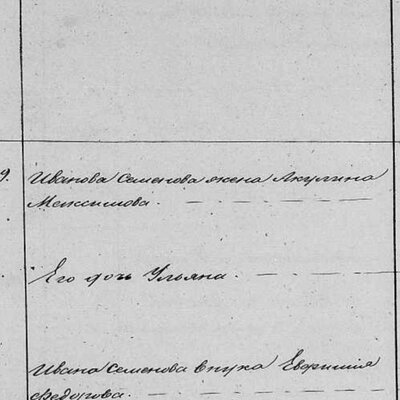 9. Иванова Семенова жена Акулина
Максимова.
Его дочь Ульяна.
Ивана Семенова внука Евфимия
Федорова.